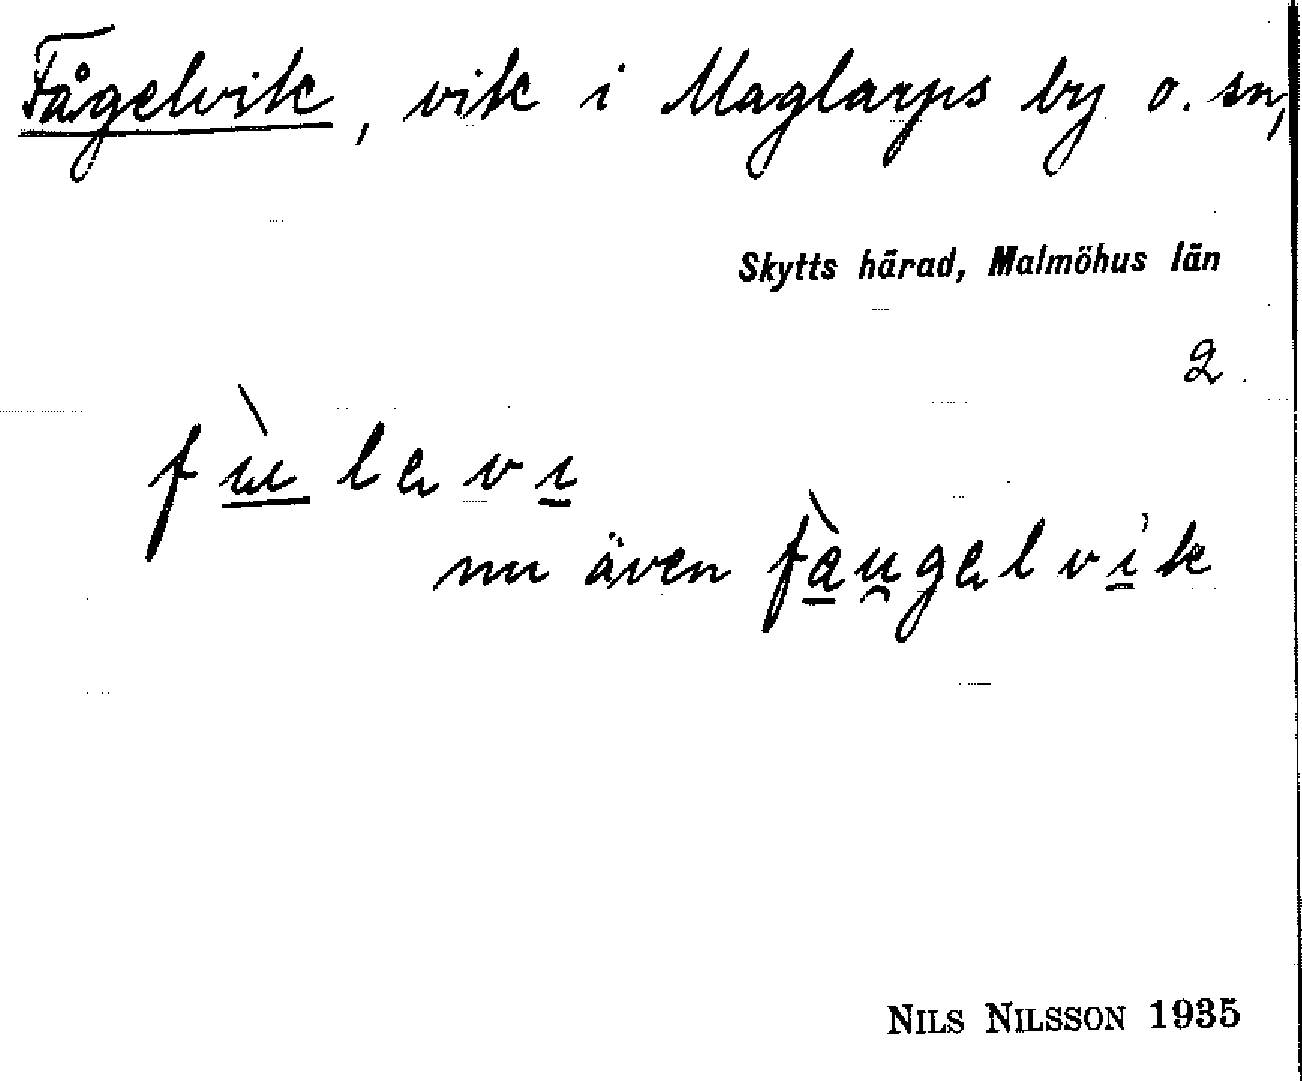 Fågelvik, vik i Maglarps by o. sn,
Skytts härad, Malmöhus län
2.
fùləvi
nu även fàugəlvik
NILS NILSSON 1935